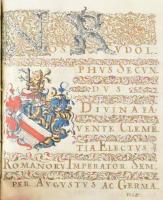 NOS RVDOL,
PHVS SECVN
DVS
DIVINA FA,
VENTE CLEMĒ
TIA ELECTVS
ROMANORV IMPERATOR SEM,
PER AVGVSTVS AC GERMA,